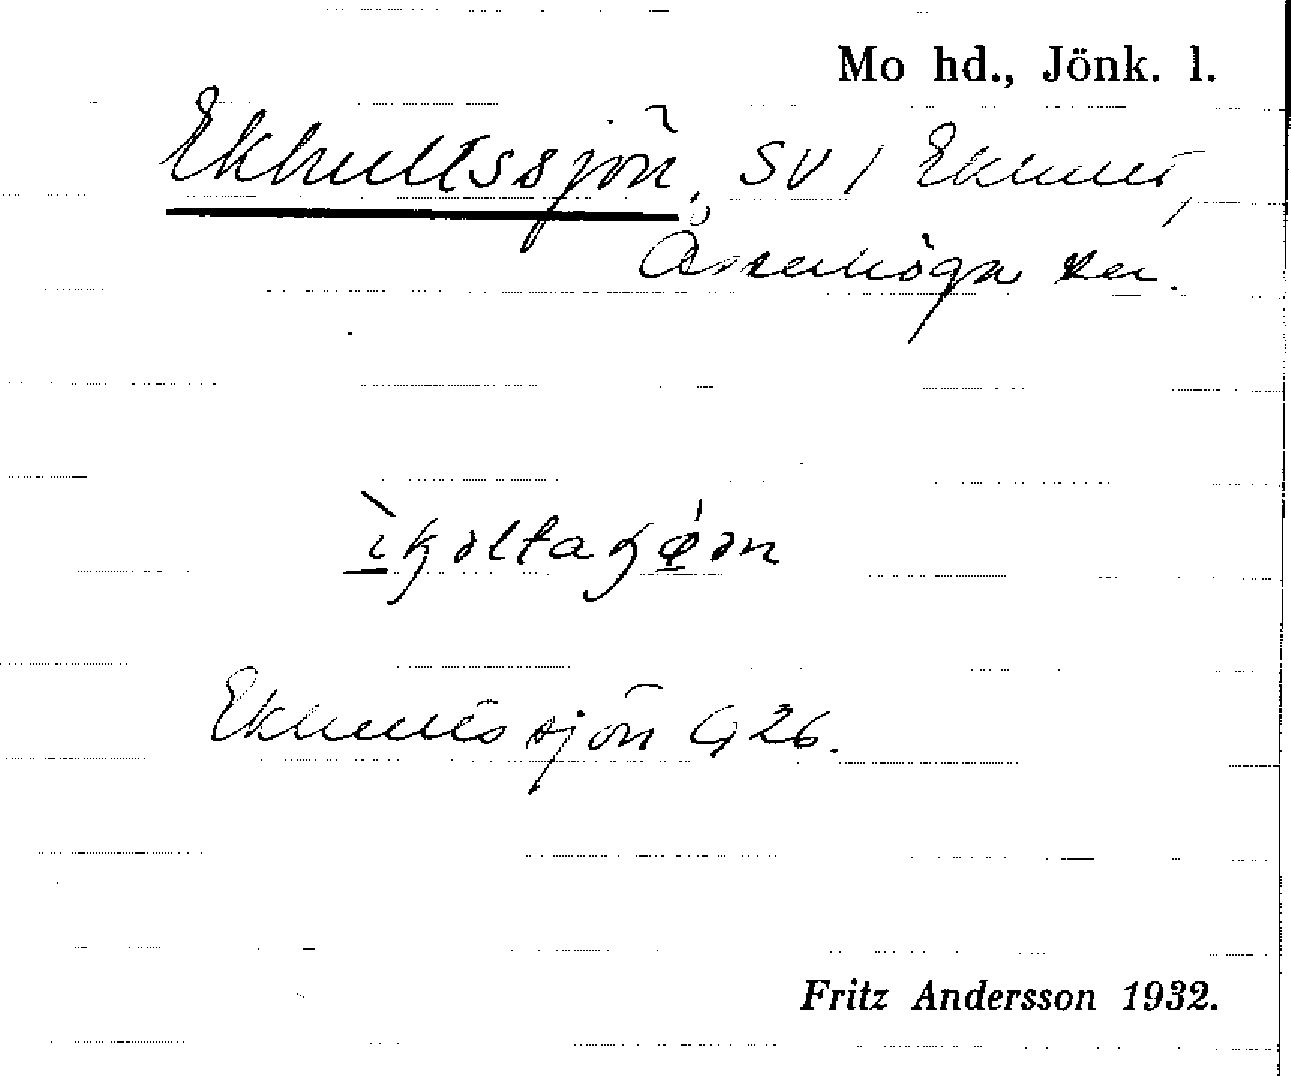 Mo hd., Jönk. l.
Ekhultssjön, SV / Ekhult,
Åsenhöga sn.
Ekhultssjön G 26.
Fritz Andersson 1932.